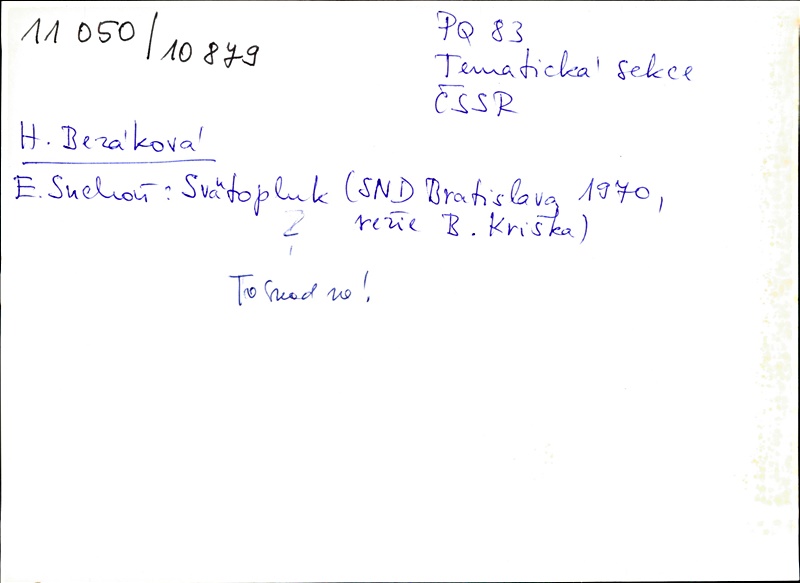 11 050/10 879
PQ 83
Tematická sekce
ČSSR
H. Bezáková
E. Suchoň: Svätopluk (SND Bratislava 1970,
režie B. Kriška)
?
To snad ne!